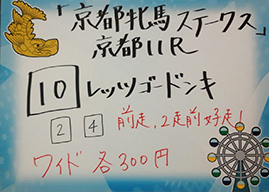 「京都牝馬ステークス」
京都11R
10 レッツゴードンキ
2 4 前走、2走前好走!
ワイド 各300円